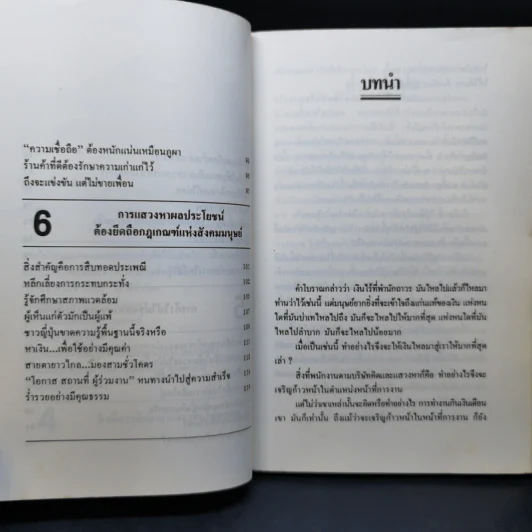 "ความเชื่อถือ" ต้องหนักแน่นเหมือนภูผา
ร้านค้าที่ดีต้องรักษาความเก่าแก่ไว้
ถึงจะแข่งขัน แต่ไม่ขายเพื่อน
6
การแสวงหาผลประโยชน์
ต้องยึดถือกฎเกณฑ์แห่งสังคมมนุษย์
สิ่งสำคัญคือการสืบทอดประเพณี
หลีกเลี่ยงการกระทบกระทั่ง
รู้จักศึกษาสภาพแวดล้อม
ผู้เห็นแก่ตัวมักเป็นผู้แพ้
ชาวญี่ปุ่นขาดความรู้พื้นฐานนี้จริงหรือ
หาเงิน...เพื่อใช้อย่างมีคุณค่า
สายตายาวไกล...มองสามชั่วโคตร
"โอกาส สถานที่ ผู้ร่วมงาน" หนทางนำไปสู่ความสำเร็จ
ร่ำรวยอย่างมีคุณธรรม
บทนำ
คำโบราณกล่าวว่า เงินไร้ที่พำนักถาวร มันไหลไปแล้วก็ไหลมา
ท่านว่าไว้เช่นนี้ แต่มนุษย์ยากยิ่งที่จะเข้าใจถึงแก่นแท้ของเงิน แห่งหน
ใดที่มันบ่าเทไหลไปถึง มันก็จะไหลไปให้มากที่สุด แห่งหนใดที่มัน
ไหลไปลำบาก มันก็จะไหลไปน้อยมาก
เมื่อเป็นเช่นนี้ ทำอย่างไรจึงจะให้เงินไหลมาสู่เราให้มากที่สุด
เล่า ?
สิ่งที่พนักงานตามบริษัทคิดและแสวงหาก็คือ ทำอย่างไรจึงจะ
เจริญก้าวหน้าในตำแหน่งหน้าที่การงาน
แต่ไม่ว่าเขาเหล่านั้นจะคิดหรือทำอย่างไร การทำงานกินเงินเดือน
เขา มันก็เท่านั้น ถึงแม้ว่าจะเจริญก้าวหน้าในหน้าที่การงาน ก็ยัง